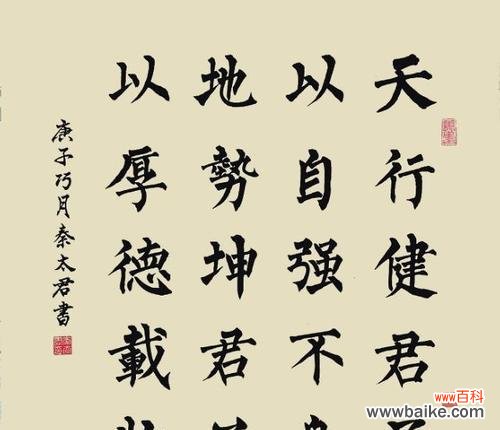 天行健君
以自强不
地勢坤君
以厚德載
庚子巧月秦太君書
www百科
www.baike.com